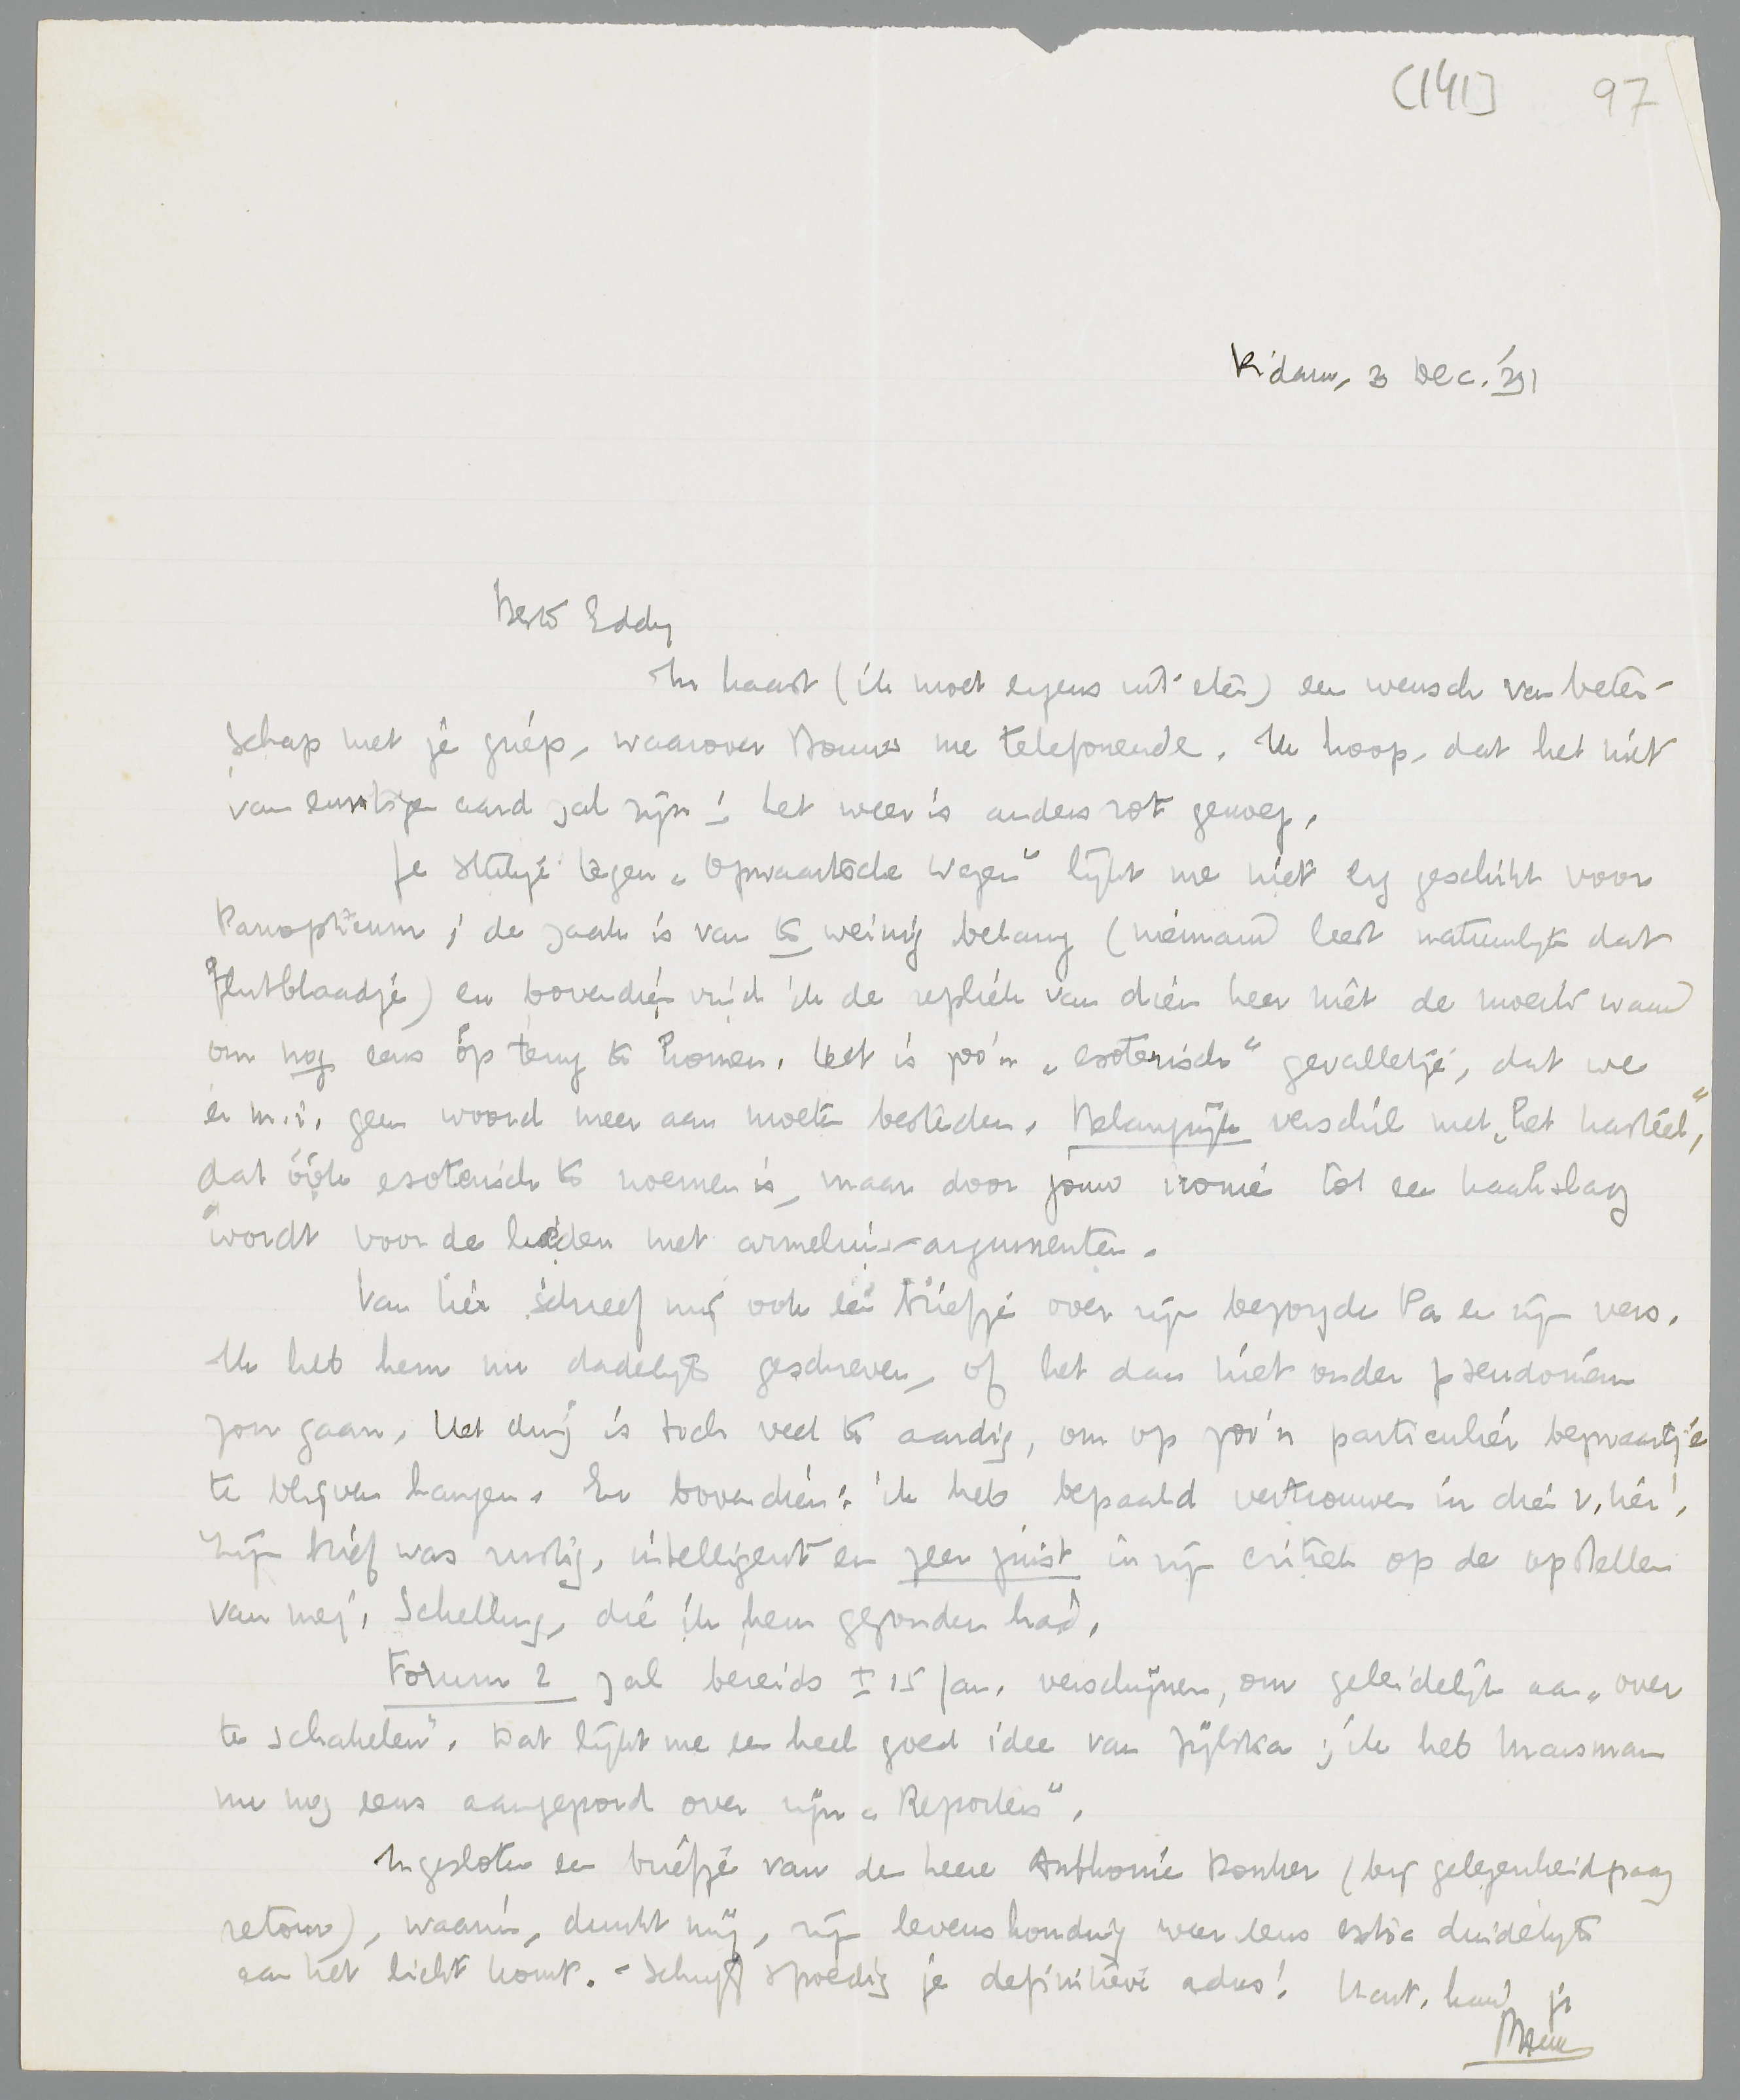 (141] 97
R'dam, 3 Dec. '31
Beste Eddy
In haast (ik moet ergens uit eten) een wensch van beter-
schap met je griep, waarover Bouws me telefoneerde. Ik hoop, dat het niet
van ernstigen aard zal zijn! het weer is anders rot genoeg.
Je stukje tegen „Opwaartsche Wegen" lijkt me niet erg geschikt voor
Panopticum; de zaak is van te weinig belang (niemand leest natuurlijk dat
flutblaadje) en bovendien vind ik de repliek van dien heer niet de moeite waard
om nog eens òp terug te komen. Het is zoo'n „esoterisch" gevalletje, dat we
er m.i. geen woord meer aan moeten besteden. Belangrijk verschil met „het kasteel",
dat óók esoterisch te noemen is, maar door jouw ironie tot een kaakslag
wordt voor de lieden met armeluis-argumenten.
Van Lier schreef mij ook een briefje over zijn bezorgde Pa en zijn vers.
Ik heb hem nu dadelijk geschreven, of het dan niet onder pseudoniem
zou gaan. Het ding is toch veel te aardig, om op zoo'n particulier bezwaartje
te blijven hangen. En bovendien: ik heb bepaald vertrouwen in die v. Lier!
Zijn brief was rustig, intelligent en zeer juist in zijn critiek op de opstellen
van mej. Schelling, die ik hem gezonden had.
Forum 2 zal bereids ± 15 Jan. verschijnen, om geleidelijk aan „over
te schakelen". Dat lijkt me een heel goed idee van Zijlstra; ik heb Marsman
nu nog eens aangepord over zijn „Reporters".
Ingesloten een briefje van den heere Anthonie Donker (bij gelegenheid graag
retour), waarin, dunkt mij, zijn levenshouding weer eens extra duidelijk
aan het licht komt. - Schrijf spoedig je definitieve adres! Hart. hand je
Menno